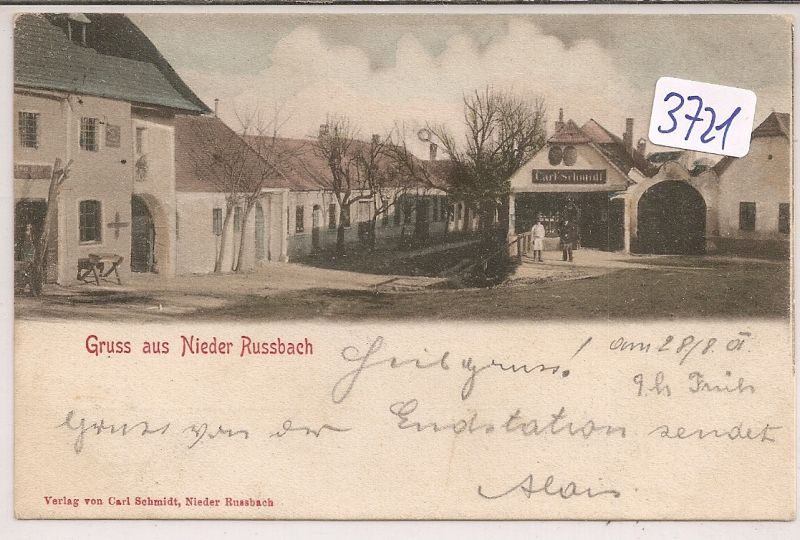 3721
Carl Schmidt
Gruss aus Nieder Russbach
Heilgruss! am 28/8.
9 h Früh
Gruss von der Endstation sendet
Alois.
Verlag von Carl Schmidt, Nieder Russbach